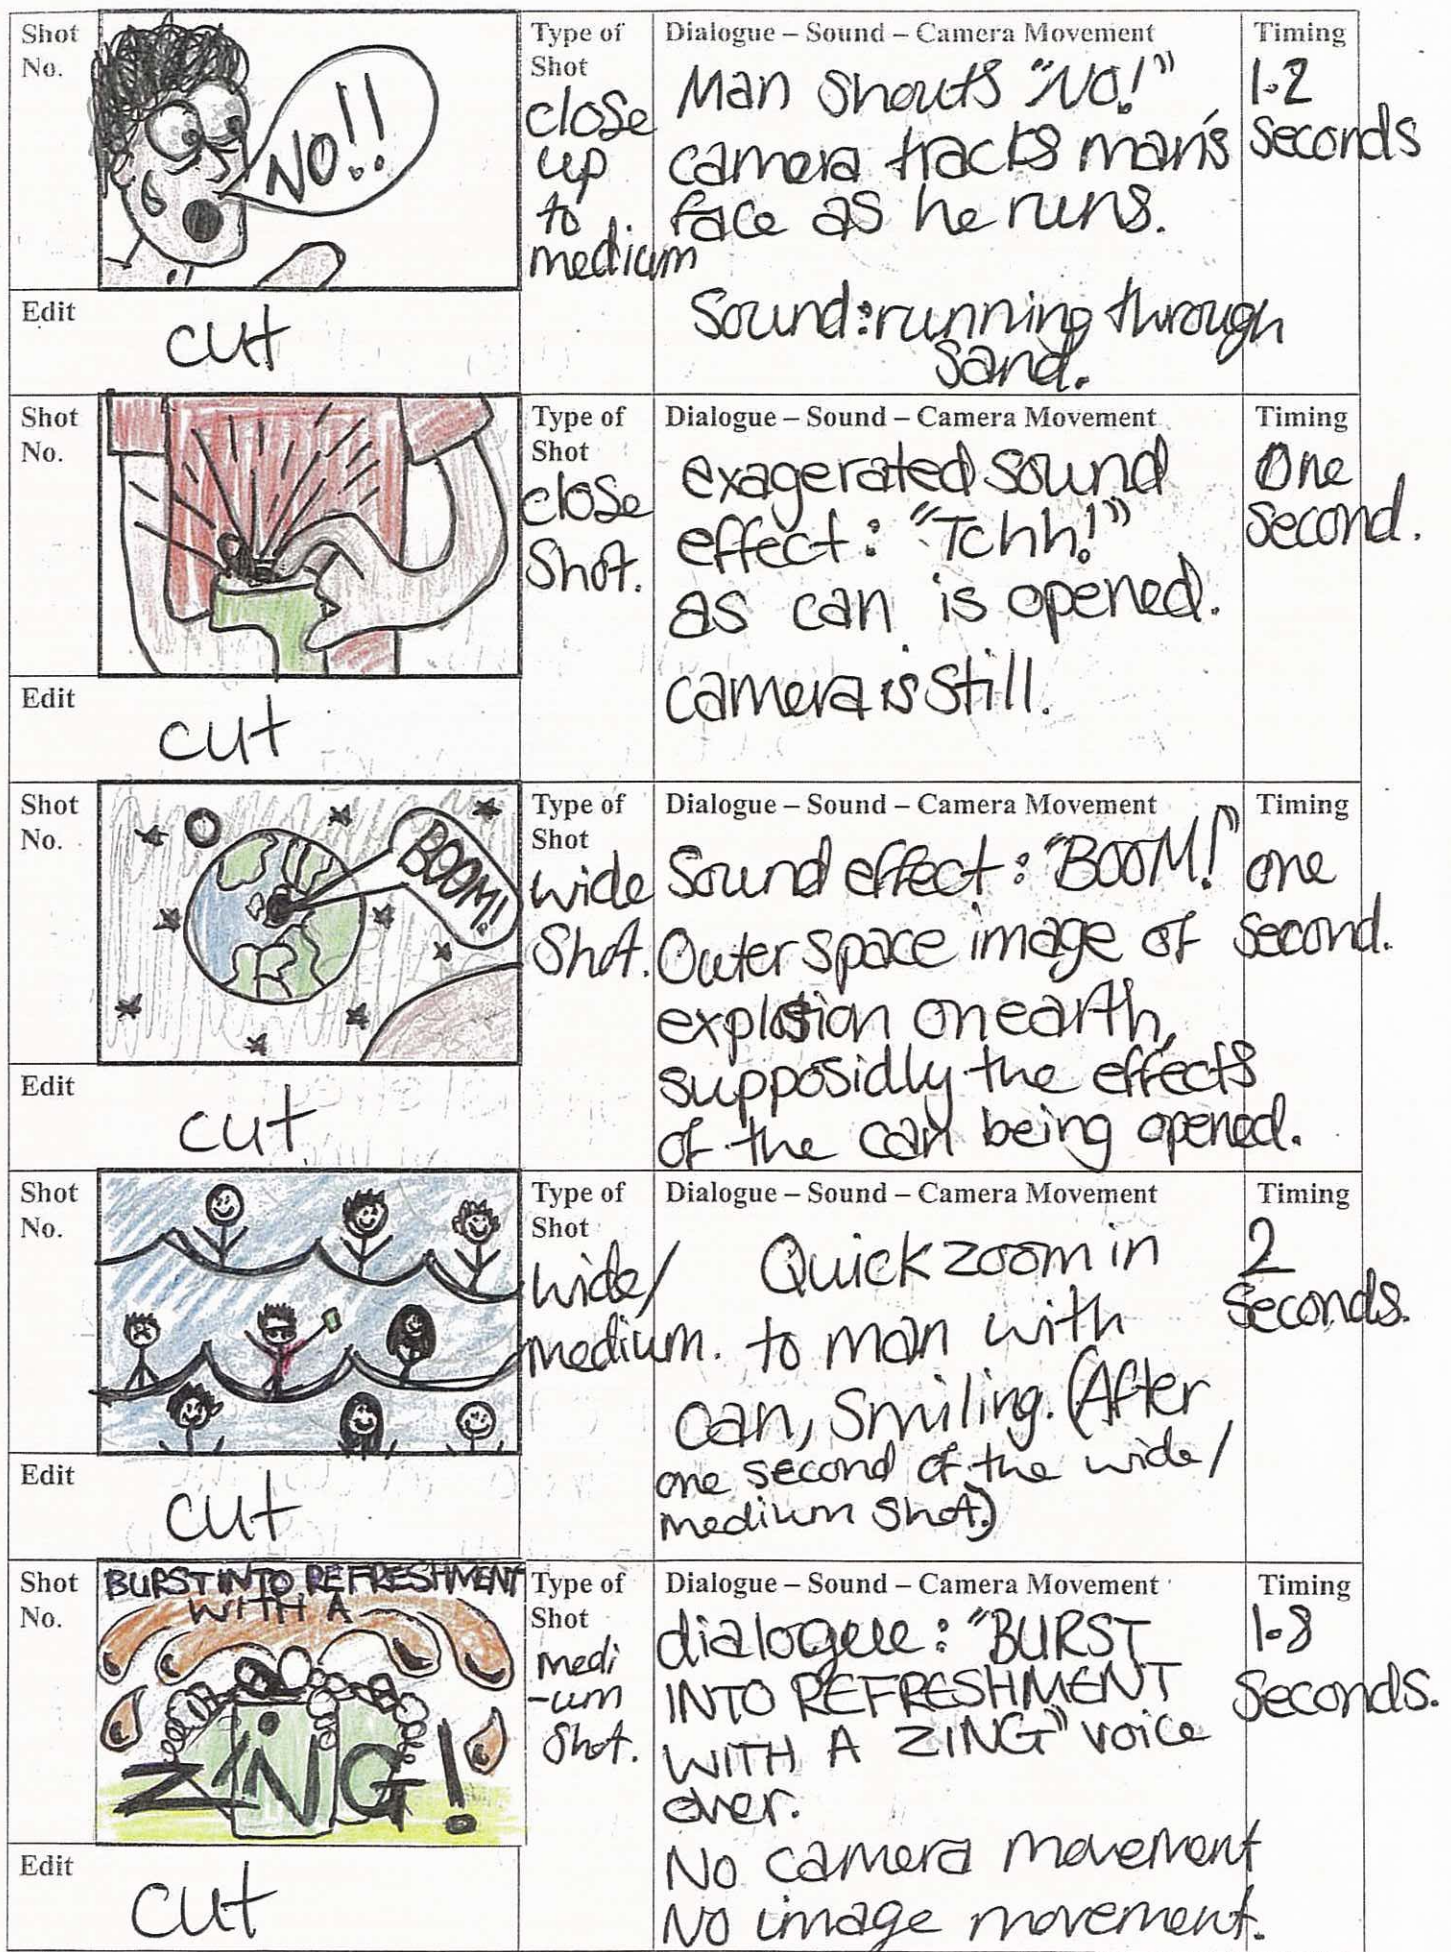 Shot
No.
NO!!
Type of
Shot
close
up
to
medium
Dialogue – Sound – Camera Movement
Man shouts "NO!"
camera tracks man's
face as he runs.
Sound: running through
sand.
Timing
1-2
seconds
Edit
cut
Shot
No.
Type of
Shot
close
shot.
Dialogue – Sound – Camera Movement
exagerated sound
effect: "Tchh!"
as can is opened.
camera is still.
Timing
One
second.
Edit
cut
Shot
No.
BOOM!
Type of
Shot
wide
shot.
Dialogue – Sound – Camera Movement
Sound effect: "BOOM!"
Outer space image of
explosion on earth,
supposidly the effects
of the can being opened.
Timing
one
second.
Edit
cut
Shot
No.
Type of
Shot
wide/
medium.
Dialogue – Sound – Camera Movement
Quick zoom in
to man with
can, smiling. (After
one second of the wide/
medium shot.)
Timing
2
seconds.
Edit
cut
Shot
No.
BURST INTO REFRESHMENT
WITH A
ZING!
Type of
Shot
medi
-um
shot.
Dialogue – Sound – Camera Movement
dialogue: "BURST
INTO REFRESHMENT
WITH A ZING" voice
over.
No camera movement
No image movement.
Timing
1-8
seconds.
Edit
cut